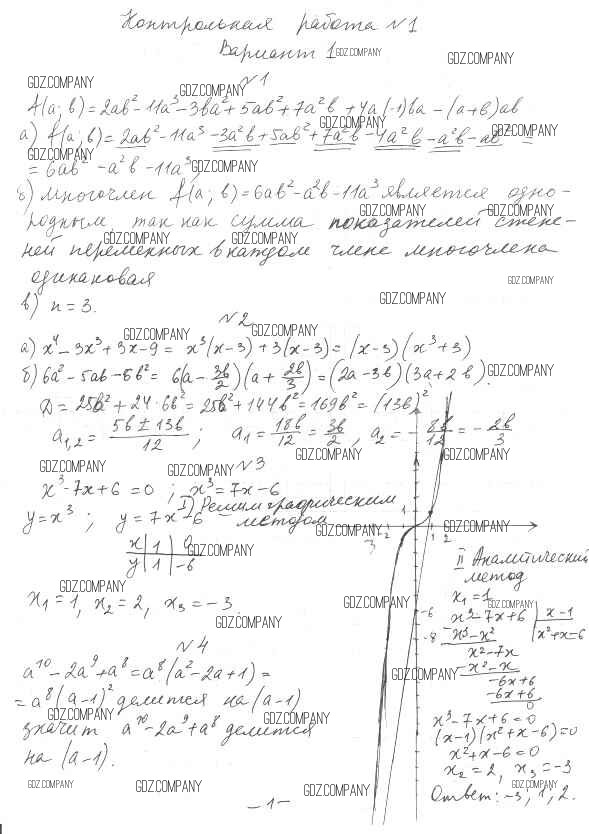 Контрольная работа №1
Вариант 1
№1
f(a; b) = 2ab² - 11a³ - 3ba² + 5ab² + 7a²b + 4a(-1)ba - (a+b)ab
а) f(a; b) = 2ab² - 11a³ - 3a²b + 5ab² + 7a²b - 4a²b - a²b - ab² =
= 6ab² - a²b - 11a³
б) многочлен f(a; b) = 6ab² - a²b - 11a³ является одно-
родным, так как сумма показателей степе-
ней переменных в каждом члене многочлена
одинаковая
в) n = 3.
№2
а) x⁴ - 3x³ + 3x - 9 = x³(x-3) + 3(x-3) = (x-3)(x³+3)
б) 6a² - 5ab - 6b² = 6(a - 3b/2)(a + 2b/3) = (2a-3b)(3a+2b).
D = 25b² + 24·6b² = 25b² + 144b² = 169b² = (13b)²
a₁,₂ = 5b ± 13b / 12 ; a₁ = 18b/12 = 3b/2, a₂ = - 8b/12 = - 2b/3
№3
x³ - 7x + 6 = 0 ; x³ = 7x - 6
I) Решим графическим
y = x³ ; y = 7x - 6 методом
x | 1 | 0
y | 1 | -6
x₁ = 1, x₂ = 2, x₃ = -3.
1
3 2 1 2
-6
-8
II Аналитический
метод
x₁ = 1
x³ - 7x + 6 | x - 1
x³ - x² | x² + x - 6
x² - 7x
x² - x
-6x + 6
-6x + 6
0
x³ - 7x + 6 = 0
(x-1)(x² + x - 6) = 0
x² + x - 6 = 0
x₂ = 2, x₃ = -3
Ответ: -3; 1; 2.
№4
a¹⁰ - 2a⁹ + a⁸ = a⁸(a² - 2a + 1) =
= a⁸(a-1)² делится на (a-1)
значит a¹⁰ - 2a⁹ + a⁸ делится
на (a-1).
-1-
GDZ.COMPANY